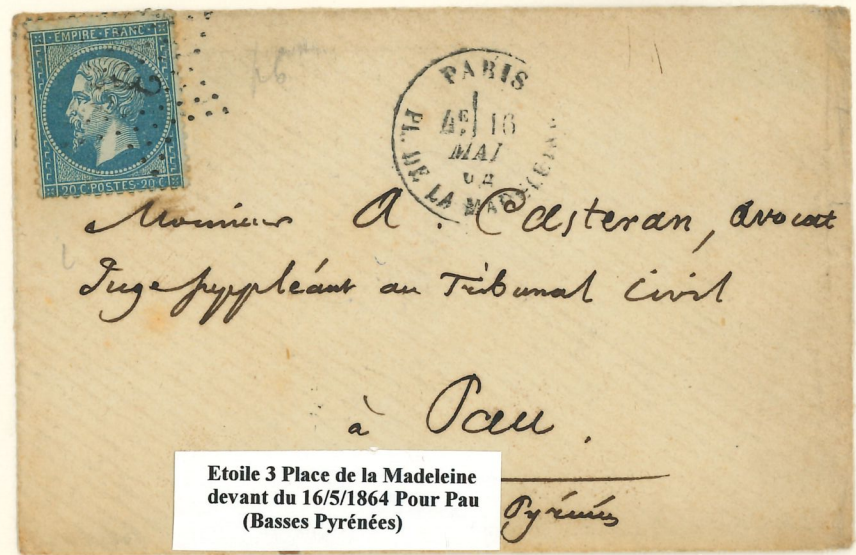 EMPIRE · FRANC ·
3
20 C · POSTES · 20 C
PARIS
4E 16
MAI
64
PL. DE LA MADELEINE
Monsieur A. Casteran, avocat
Juge suppléant au Tribunal Civil
à Pau.
Pyrénées
Etoile 3 Place de la Madeleine
devant du 16/5/1864 Pour Pau
(Basses Pyrénées)